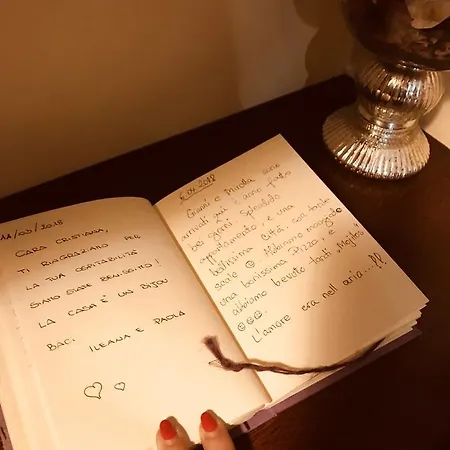 11/03/2018
CARA CRISTIANA,
TI RINGRAZIAMO PER
LA TUA OSPITALITÀ
SIAMO STATE BENISSIMO!
LA CASA È UN BIJOU
BACI ILEANA E PAOLA
2018
Gianni e Mirella siamo
arrivati qui e
bei giorni splendido
appartamento, e una
bellissima città.
Abbiamo mangiato
una bellissima Pizza, e
abbiamo bevuto tanti "Mojitos"
L'amore era nell aria...!!